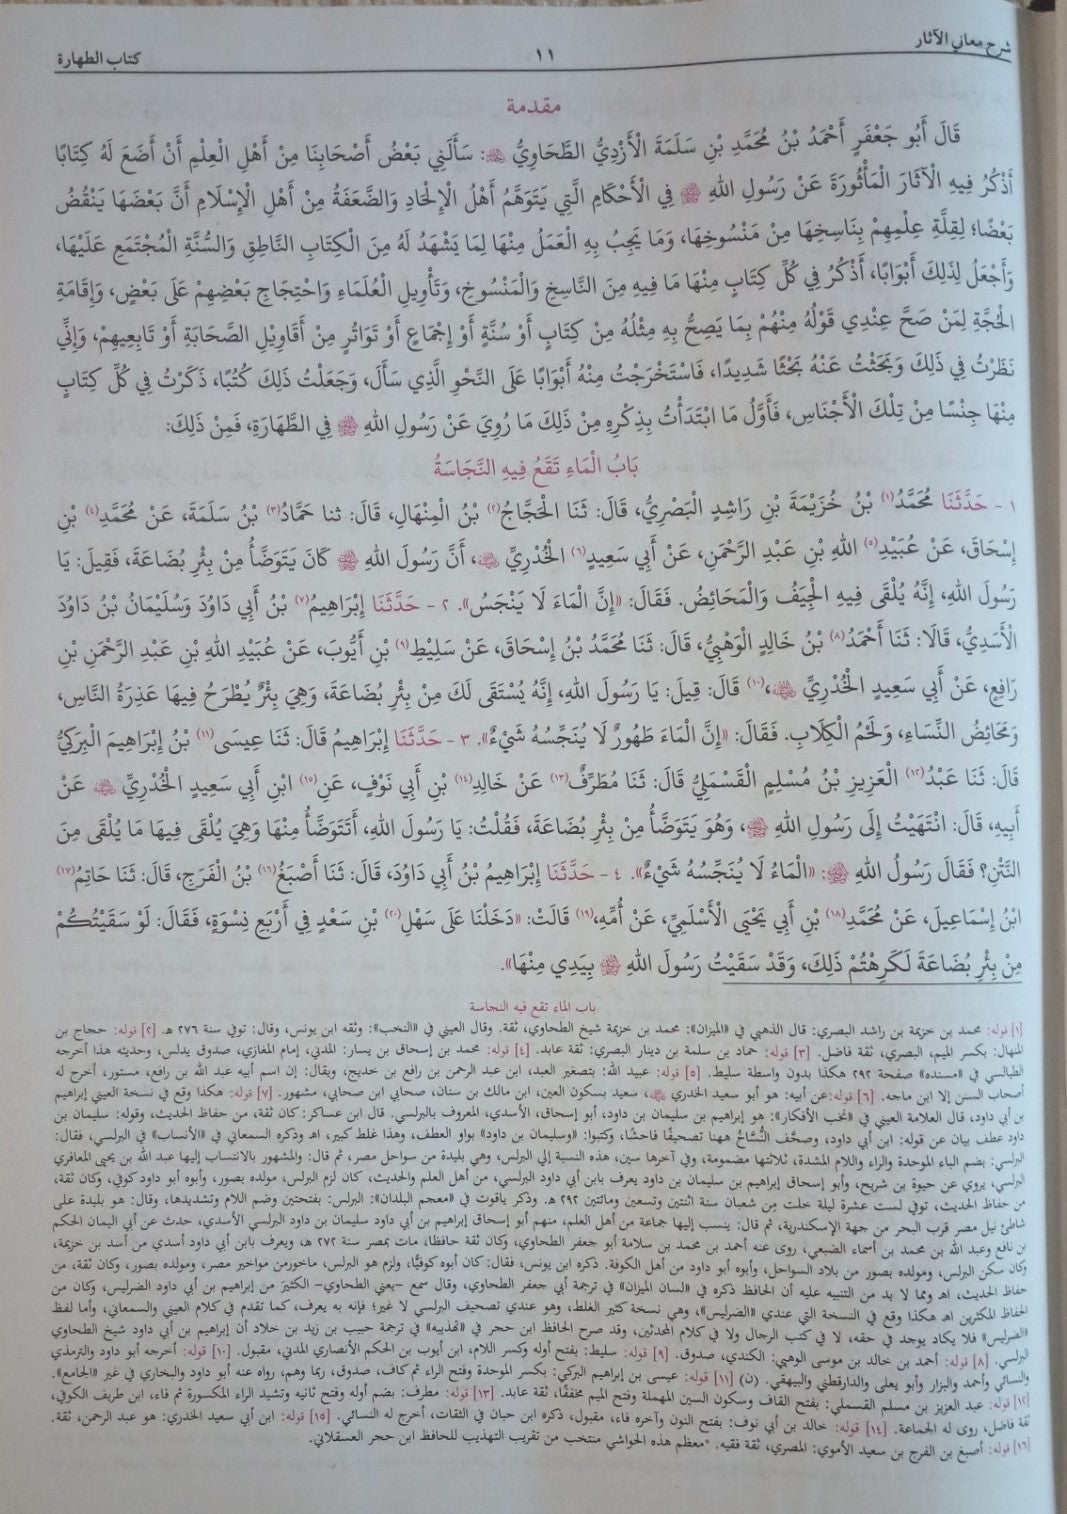 شرح معاني الآثار
١١
كتاب الطهارة
مقدمة
قَالَ أَبُو جَعْفَرٍ أَحْمَدُ بْنُ مُحَمَّدِ بْنِ سَلَمَةَ الْأَزْدِيُّ الطَّحَاوِيُّ ﵀: سَأَلَنِي بَعْضُ أَصْحَابِنَا مِنْ أَهْلِ الْعِلْمِ أَنْ أَضَعَ لَهُ كِتَابًا
أَذْكُرُ فِيهِ الْآثَارَ الْمَأْثُورَةَ عَنْ رَسُولِ اللهِ ﷺ فِي الْأَحْكَامِ الَّتِي يَتَوَهَّمُ أَهْلُ الْإِلْحَادِ وَالضَّعَفَةُ مِنْ أَهْلِ الْإِسْلَامِ أَنَّ بَعْضَهَا يَنْقُضُ
بَعْضًا؛ لِقِلَّةِ عِلْمِهِمْ بِنَاسِخِهَا مِنْ مَنْسُوخِهَا، وَمَا يَجِبُ بِهِ الْعَمَلُ مِنْهَا لِمَا يَشْهَدُ لَهُ مِنَ الْكِتَابِ النَّاطِقِ وَالسُّنَّةِ الْمُجْتَمَعِ عَلَيْهَا،
وَأَجْعَلُ لِذَلِكَ أَبْوَابًا، أَذْكُرُ فِي كُلِّ كِتَابٍ مِنْهَا مَا فِيهِ مِنَ النَّاسِخِ وَالْمَنْسُوخِ، وَتَأْوِيلِ الْعُلَمَاءِ وَاحْتِجَاجِ بَعْضِهِمْ عَلَى بَعْضٍ، وَإِقَامَةِ
الْحُجَّةِ لِمَنْ صَحَّ عِنْدِي قَوْلُهُ مِنْهُمْ بِمَا يَصِحُّ بِهِ مِثْلُهُ مِنْ كِتَابٍ أَوْ سُنَّةٍ أَوْ إِجْمَاعٍ أَوْ تَوَاتُرٍ مِنْ أَقَاوِيلِ الصَّحَابَةِ أَوْ تَابِعِيهِمْ، وَإِنِّي
نَظَرْتُ فِي ذَلِكَ وَبَحَثْتُ عَنْهُ بَحْثًا شَدِيدًا، فَاسْتَخْرَجْتُ مِنْهُ أَبْوَابًا عَلَى النَّحْوِ الَّذِي سَأَلَ، وَجَعَلْتُ ذَلِكَ كُتُبًا، ذَكَرْتُ فِي كُلِّ كِتَابٍ
مِنْهَا جِنْسًا مِنْ تِلْكَ الْأَجْنَاسِ، فَأَوَّلُ مَا ابْتَدَأْتُ بِذِكْرِهِ مِنْ ذَلِكَ مَا رُوِيَ عَنْ رَسُولِ اللهِ ﷺ فِي الطَّهَارَةِ، فَمِنْ ذَلِكَ:
بَابُ الْمَاءِ تَقَعُ فِيهِ النَّجَاسَةُ
١ - حَدَّثَنَا مُحَمَّدُ(١) بْنُ خُزَيْمَةَ بْنِ رَاشِدٍ الْبَصْرِيُّ، قَالَ: ثَنَا الْحَجَّاجُ(٢) بْنُ الْمِنْهَالِ، قَالَ: ثنا حَمَّادُ(٣) بْنُ سَلَمَةَ، عَنْ مُحَمَّدِ(٤) بْنِ
إِسْحَاقَ، عَنْ عُبَيْدِ(٥) اللهِ بْنِ عَبْدِ الرَّحْمَنِ، عَنْ أَبِي سَعِيدٍ(٦) الْخُدْرِيِّ ﵁، أَنَّ رَسُولَ اللهِ ﷺ كَانَ يَتَوَضَّأُ مِنْ بِئْرِ بُضَاعَةَ، فَقِيلَ: يَا
رَسُولَ اللهِ، إِنَّهُ يُلْقَى فِيهِ الْجِيَفُ وَالْمَحَائِضُ. فَقَالَ: «إِنَّ الْمَاءَ لَا يَنْجَسُ». ٢ - حَدَّثَنَا إِبْرَاهِيمُ(٧) بْنُ أَبِي دَاوُدَ وَسُلَيْمَانُ بْنُ دَاوُدَ
الْأَسَدِيُّ، قَالَا: ثَنَا أَحْمَدُ(٨) بْنُ خَالِدٍ الْوَهْبِيُّ، قَالَ: ثَنَا مُحَمَّدُ بْنُ إِسْحَاقَ، عَنْ سَلِيْطِ(٩) بْنِ أَيُّوبَ، عَنْ عُبَيْدِ اللهِ بْنِ عَبْدِ الرَّحْمَنِ بْنِ
رَافِعٍ، عَنْ أَبِي سَعِيدٍ الْخُدْرِيِّ ﵁،(١٠) قَالَ: قِيلَ: يَا رَسُولَ اللهِ، إِنَّهُ يُسْتَقَى لَكَ مِنْ بِئْرِ بُضَاعَةَ، وَهِيَ بِئْرٌ يُطْرَحُ فِيهَا عَذِرَةُ النَّاسِ،
وَمَحَائِضُ النِّسَاءِ، وَلَحْمُ الْكِلَابِ. فَقَالَ: «إِنَّ الْمَاءَ طَهُورٌ لَا يُنَجِّسُهُ شَيْءٌ». ٣ - حَدَّثَنَا إِبْرَاهِيمُ قَالَ: ثَنَا عِيسَى(١١) بْنُ إِبْرَاهِيمَ الْبِرَكِيُّ
قَالَ: ثَنَا عَبْدُ(١٢) الْعَزِيزِ بْنُ مُسْلِمٍ الْقَسْمَلِيُّ قَالَ: ثَنَا مُطَرِّفٌ(١٣) عَنْ خَالِدِ(١٤) بْنِ أَبِي نَوْفٍ، عَنِ(١٥) ابْنِ أَبِي سَعِيدٍ الْخُدْرِيِّ ﵁ عَنْ
أَبِيهِ، قَالَ: انْتَهَيْتُ إِلَى رَسُولِ اللهِ ﷺ، وَهُوَ يَتَوَضَّأُ مِنْ بِئْرِ بُضَاعَةَ، فَقُلْتُ: يَا رَسُولَ اللهِ، أَتَتَوَضَّأُ مِنْهَا وَهِيَ يُلْقَى فِيهَا مَا يُلْقَى مِنَ
النَّتْنِ؟ فَقَالَ رَسُولُ اللهِ ﷺ: «الْمَاءُ لَا يُنَجِّسُهُ شَيْءٌ». ٤ - حَدَّثَنَا إِبْرَاهِيمُ بْنُ أَبِي دَاوُدَ، قَالَ: ثَنَا أَصْبَغُ(١٦) بْنُ الْفَرَجِ، قَالَ: ثَنَا حَاتِمُ(١٧)
ابْنُ إِسْمَاعِيلَ، عَنْ مُحَمَّدِ(١٨) بْنِ أَبِي يَحْيَى الْأَسْلَمِيِّ، عَنْ أُمِّهِ،(١٩) قَالَتْ: «دَخَلْنَا عَلَى سَهْلِ(٢٠) بْنِ سَعْدٍ فِي أَرْبَعِ نِسْوَةٍ، فَقَالَ: لَوْ سَقَيْتُكُمْ
مِنْ بِئْرِ بُضَاعَةَ لَكَرِهْتُمْ ذَلِكَ، وَقَدْ سَقَيْتُ رَسُولَ اللهِ ﷺ بِيَدِي مِنْهَا».
باب الماء تقع فيه النجاسة
[١] قوله: محمد بن خزيمة بن راشد البصري: قال الذهبي في «الميزان»: محمد بن خزيمة شيخ الطحاوي، ثقة. وقال العيني في «النخب»: وثقه ابن يونس، وقال: توفي سنة ٢٧٦ هـ. [٢] قوله: حجاج بن
المنهال: بكسر الميم، البصري، ثقة فاضل. [٣] قوله: حماد بن سلمة بن دينار البصري: ثقة عابد. [٤] قوله: محمد بن إسحاق بن يسار: المدني، إمام المغازي، صدوق يدلس، وحديثه هذا أخرجه
الطيالسي في «مسنده» صفحة ٢٩٢ هكذا بدون واسطة سليط. [٥] قوله: عبيد الله: بتصغير العبد، ابن عبد الرحمن بن رافع بن خديج، ويقال: إن اسم أبيه عبد الله بن رافع، مستور، أخرج له
أصحاب السنن إلا ابن ماجه. [٦] قوله:عن أبيه: هو أبو سعيد الخدري ﵁، سعيد بسكون العين، ابن مالك بن سنان، صحابي ابن صحابي، مشهور. [٧] قوله: هكذا وقع في نسخة العيني إبراهيم
بن أبي داود، قال العلامة العيني في «نخب الأفكار»: هو إبراهيم بن سليمان بن داود، أبو إسحاق، الأسدي، المعروف بالبرلسي. قال ابن عساكر: كان ثقة، من حفاظ الحديث، وقوله: سليمان بن
داود عطف بيان عن قوله: ابن أبي داود، وصحَّف النُّسَّاخُ ههنا تصحيفًا فاحشًا، وكتبوا: «وسليمان بن داود» بواو العطف، وهذا غلط كبير، اهـ وذكره السمعاني في «الأنساب» في البرلسي، فقال:
البرلسي: بضم الباء الموحدة والراء واللام المشدة، ثلاثتها مضمومة، وفي آخرها سين، هذه النسبة إلى البرلس، وهي بليدة من سواحل مصر، ثم قال: والمشهور بالانتساب إليها عبد الله بن يحيى المعافري
البرلسي، يروي عن حيوة بن شريح، وأبو إسحاق إبراهيم بن سليمان بن داود يعرف بابن أبي داود البرلسي، من أهل العلم والحديث، كان لزم البرلس، مولده بصور، وأبوه أبو داود كوفي، وكان ثقة،
من حفاظ الحديث، توفي لست عشرة ليلة خلت مِن شعبان سنة اثنتين وتسعين ومائتين ٢٩٢ هـ. وذكر ياقوت في «معجم البلدان»: البرلس: بفتحتين وضم اللام وتشديدها، وقال: هو بليدة على
شاطئ نيل مصر قرب البحر من جهة الإسكندرية، ثم قال: ينسب إليها جماعة من أهل العلم، منهم أبو إسحاق إبراهيم بن أبي داود سليمان بن داود البرلسي الأسدي، حدث عن أبي اليمان الحكم
بن نافع وعبد الله بن محمد بن أسماء الضبعي، روى عنه أحمد بن محمد بن سلامة أبو جعفر الطحاوي، وكان ثقة حافظا، مات بمصر سنة ٢٧٢ هـ، ويعرف بابن أبي داود أسدي من أسد بن خزيمة،
وكان سكن البرلس، ومولده بصور من بلاد السواحل، وأبوه أبو داود من أهل الكوفة. ذكره ابن يونس، فقال: كان أبوه كوفيًّا، ولزم هو البرلس، ماخورمن مواخير مصر، ومولده بصور، وكان ثقة، من
حفاظ الحديث، اهـ ومما لا بد من التنبيه عليه أن الحافظ ذكره في «لسان الميزان» في ترجمة أبي جعفر الطحاوي، وقال سمع -يعني الطحاوي- الكثيرَ من إبراهيم بن أبي داود الضريسي، وكان من
الحفاظ المكثرين اهـ هكذا وقع في النسخة التي عندي «الضريس»، وهي نسخة كثير الغلط، وهو عندي تصحيف البرلسي لا غير؛ فإنه به يعرف، كما تقدم في كلام العيني والسمعاني، وأما لفظ
«الضريس» فلا يكاد يوجد في حقه، لا في كتب الرجال ولا في كلام المحدثين، وقد صرح الحافظ ابن حجر في «تهذيبه» في ترجمة حبيب بن زيد بن خلاد أن إبراهيم بن أبي داود شيخ الطحاوي
البرلسي. [٨] قوله: أحمد بن خالد بن موسى الوهبي: الكندي، صدوق. [٩] قوله: سليط: بفتح أوله وكسر اللام، ابن أيوب بن الحكم الأنصاري المدني، مقبول. [١٠] قوله: أخرجه أبو داود والترمذي
والنسائي وأحمد والبزار وأبو يعلى والدارقطني والبيهقي. (ن) [١١] قوله: عيسى بن إبراهيم البركي: بكسر الموحدة وفتح الراء ثم كاف، صدوق، ربما وهم، رواه عنه أبو داود والبخاري في غير «الجامع».
[١٢] قوله: عبد العزيز بن مسلم القسملي: بفتح القاف وسكون السين المهملة وفتح الميم مخففًا، ثقة عابد. [١٣] قوله: مطرف: بضم أوله وفتح ثانيه وتشديد الراء المكسورة ثم فاء، ابن طريف الكوفي،
ثقة فاضل، روى له الجماعة. [١٤] قوله: خالد بن أبي نوف: بفتح النون وآخره فاء، مقبول، ذكره ابن حبان في الثقات، أخرج له النسائي. [١٥] قوله: ابن أبي سعيد الخدري: هو عبد الرحمن، ثقة.
[١٦] قوله: أصبغ بن الفرج بن سعيد الأموي: المصري، ثقة فقيه. *معظم هذه الحواشي منتخب من تقريب التهذيب للحافظ ابن حجر العسقلاني.